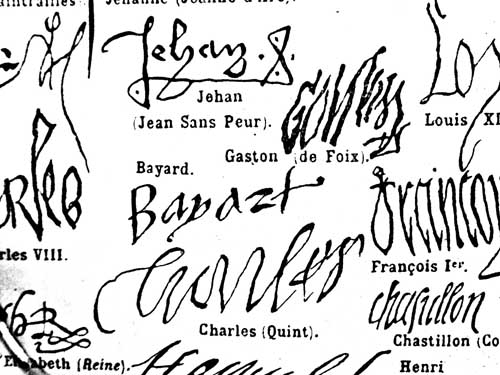 Jehanne (Jeanne d'Arc).
Jehan
Jehan
(Jean Sans Peur).
Louis XI
Gaston (de Foix).
Bayard.
Bayart
rles VIII.
François Ier.
Charles
Charles (Quint).
Chastillon
Chastillon (Co
Elisabeth (Reine).
Henri